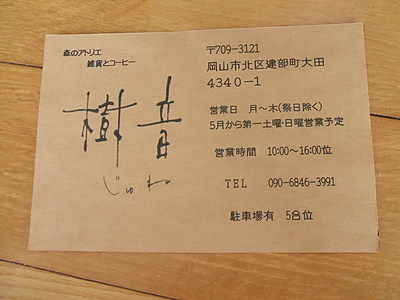 森のアトリエ
雑貨とコーヒー
樹音
じゅね
〒709-3121
岡山市北区建部町大田
4340-1
営業日 月～木(祭日除く)
5月から第一土曜・日曜営業予定
営業時間 10:00～16:00位
TEL 090-6846-3991
駐車場有 5台位